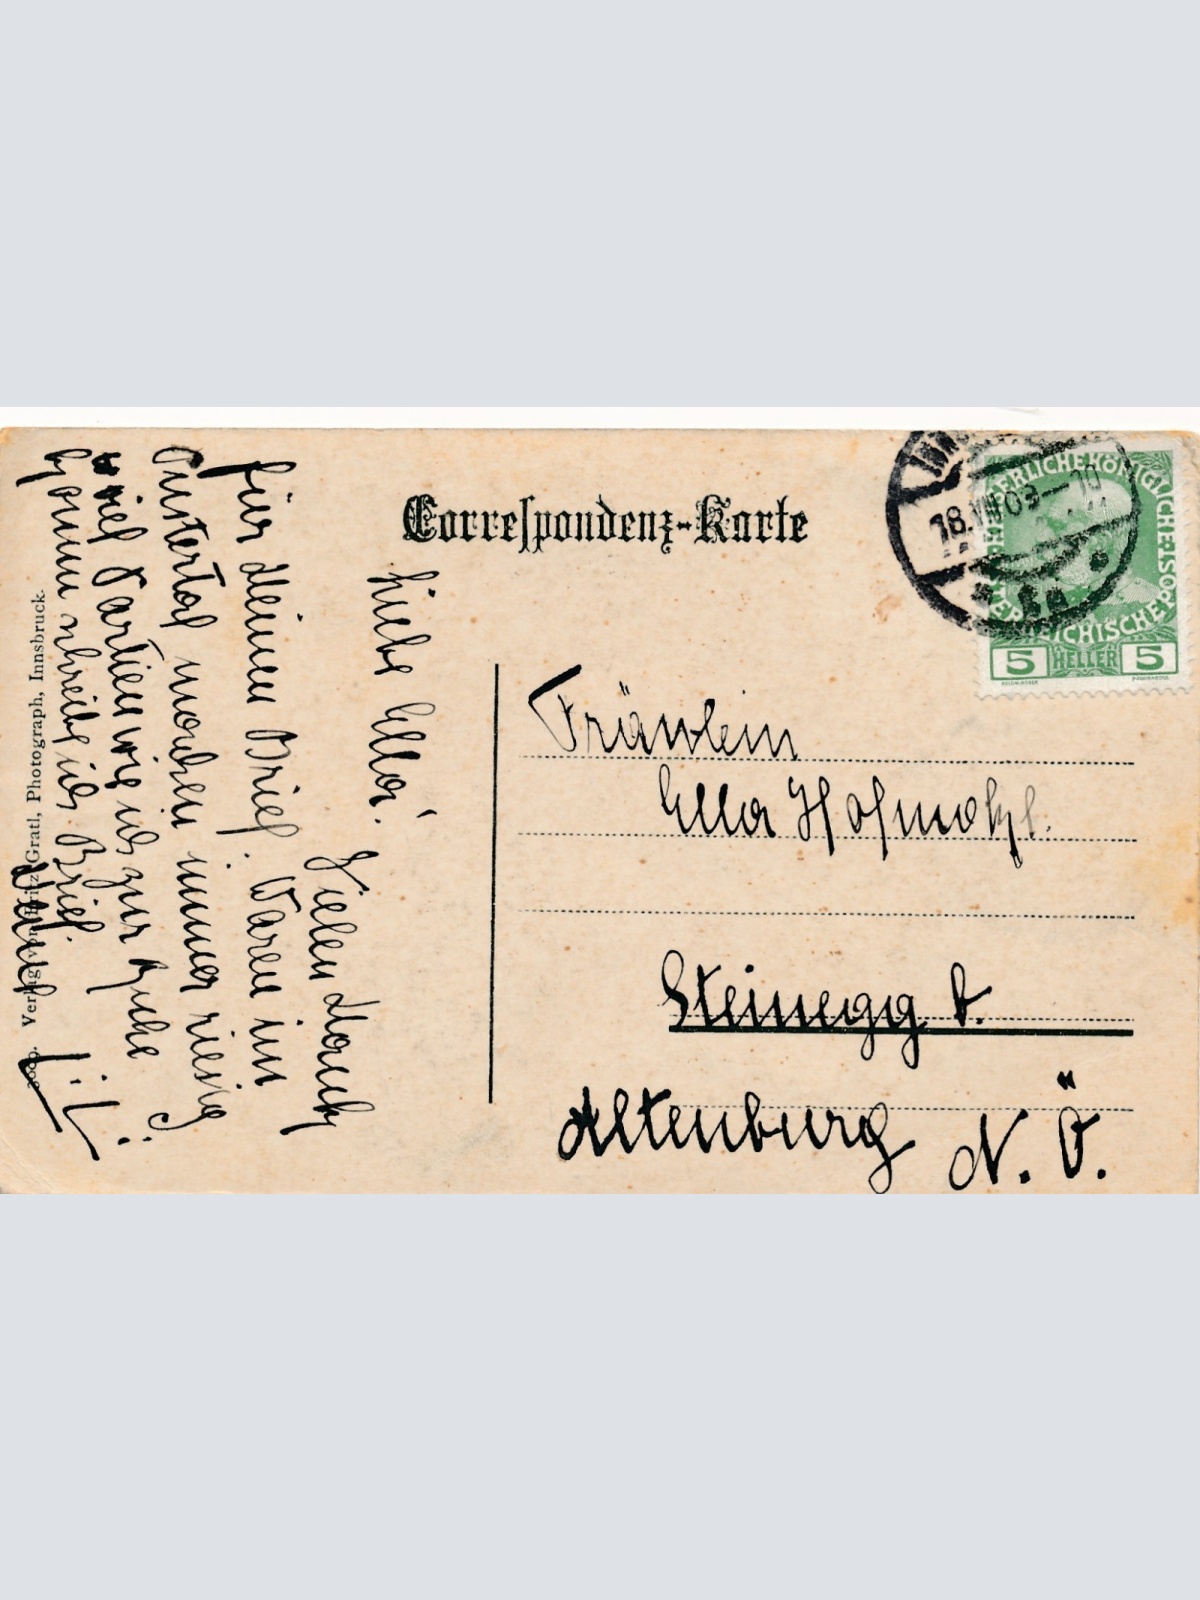 Correspondenz-Karte
Liebe Ella!
Vielen Dank
für deinen Brief. Waren im
Pustertal machen immer riesig
viel Partien wie ich zur Ruhe
komm schreibe ich Brief.
Fräulein
Ella Hofmokl.
Steinegg b.
Altenburg N. Ö.
Verlag von Fritz Gratl, Photograph, Innsbruck.
18. VIII 09 – 10
KAISERLICHE KÖNIGLICHE
ÖSTERREICHISCHE POST
5 HELLER 5